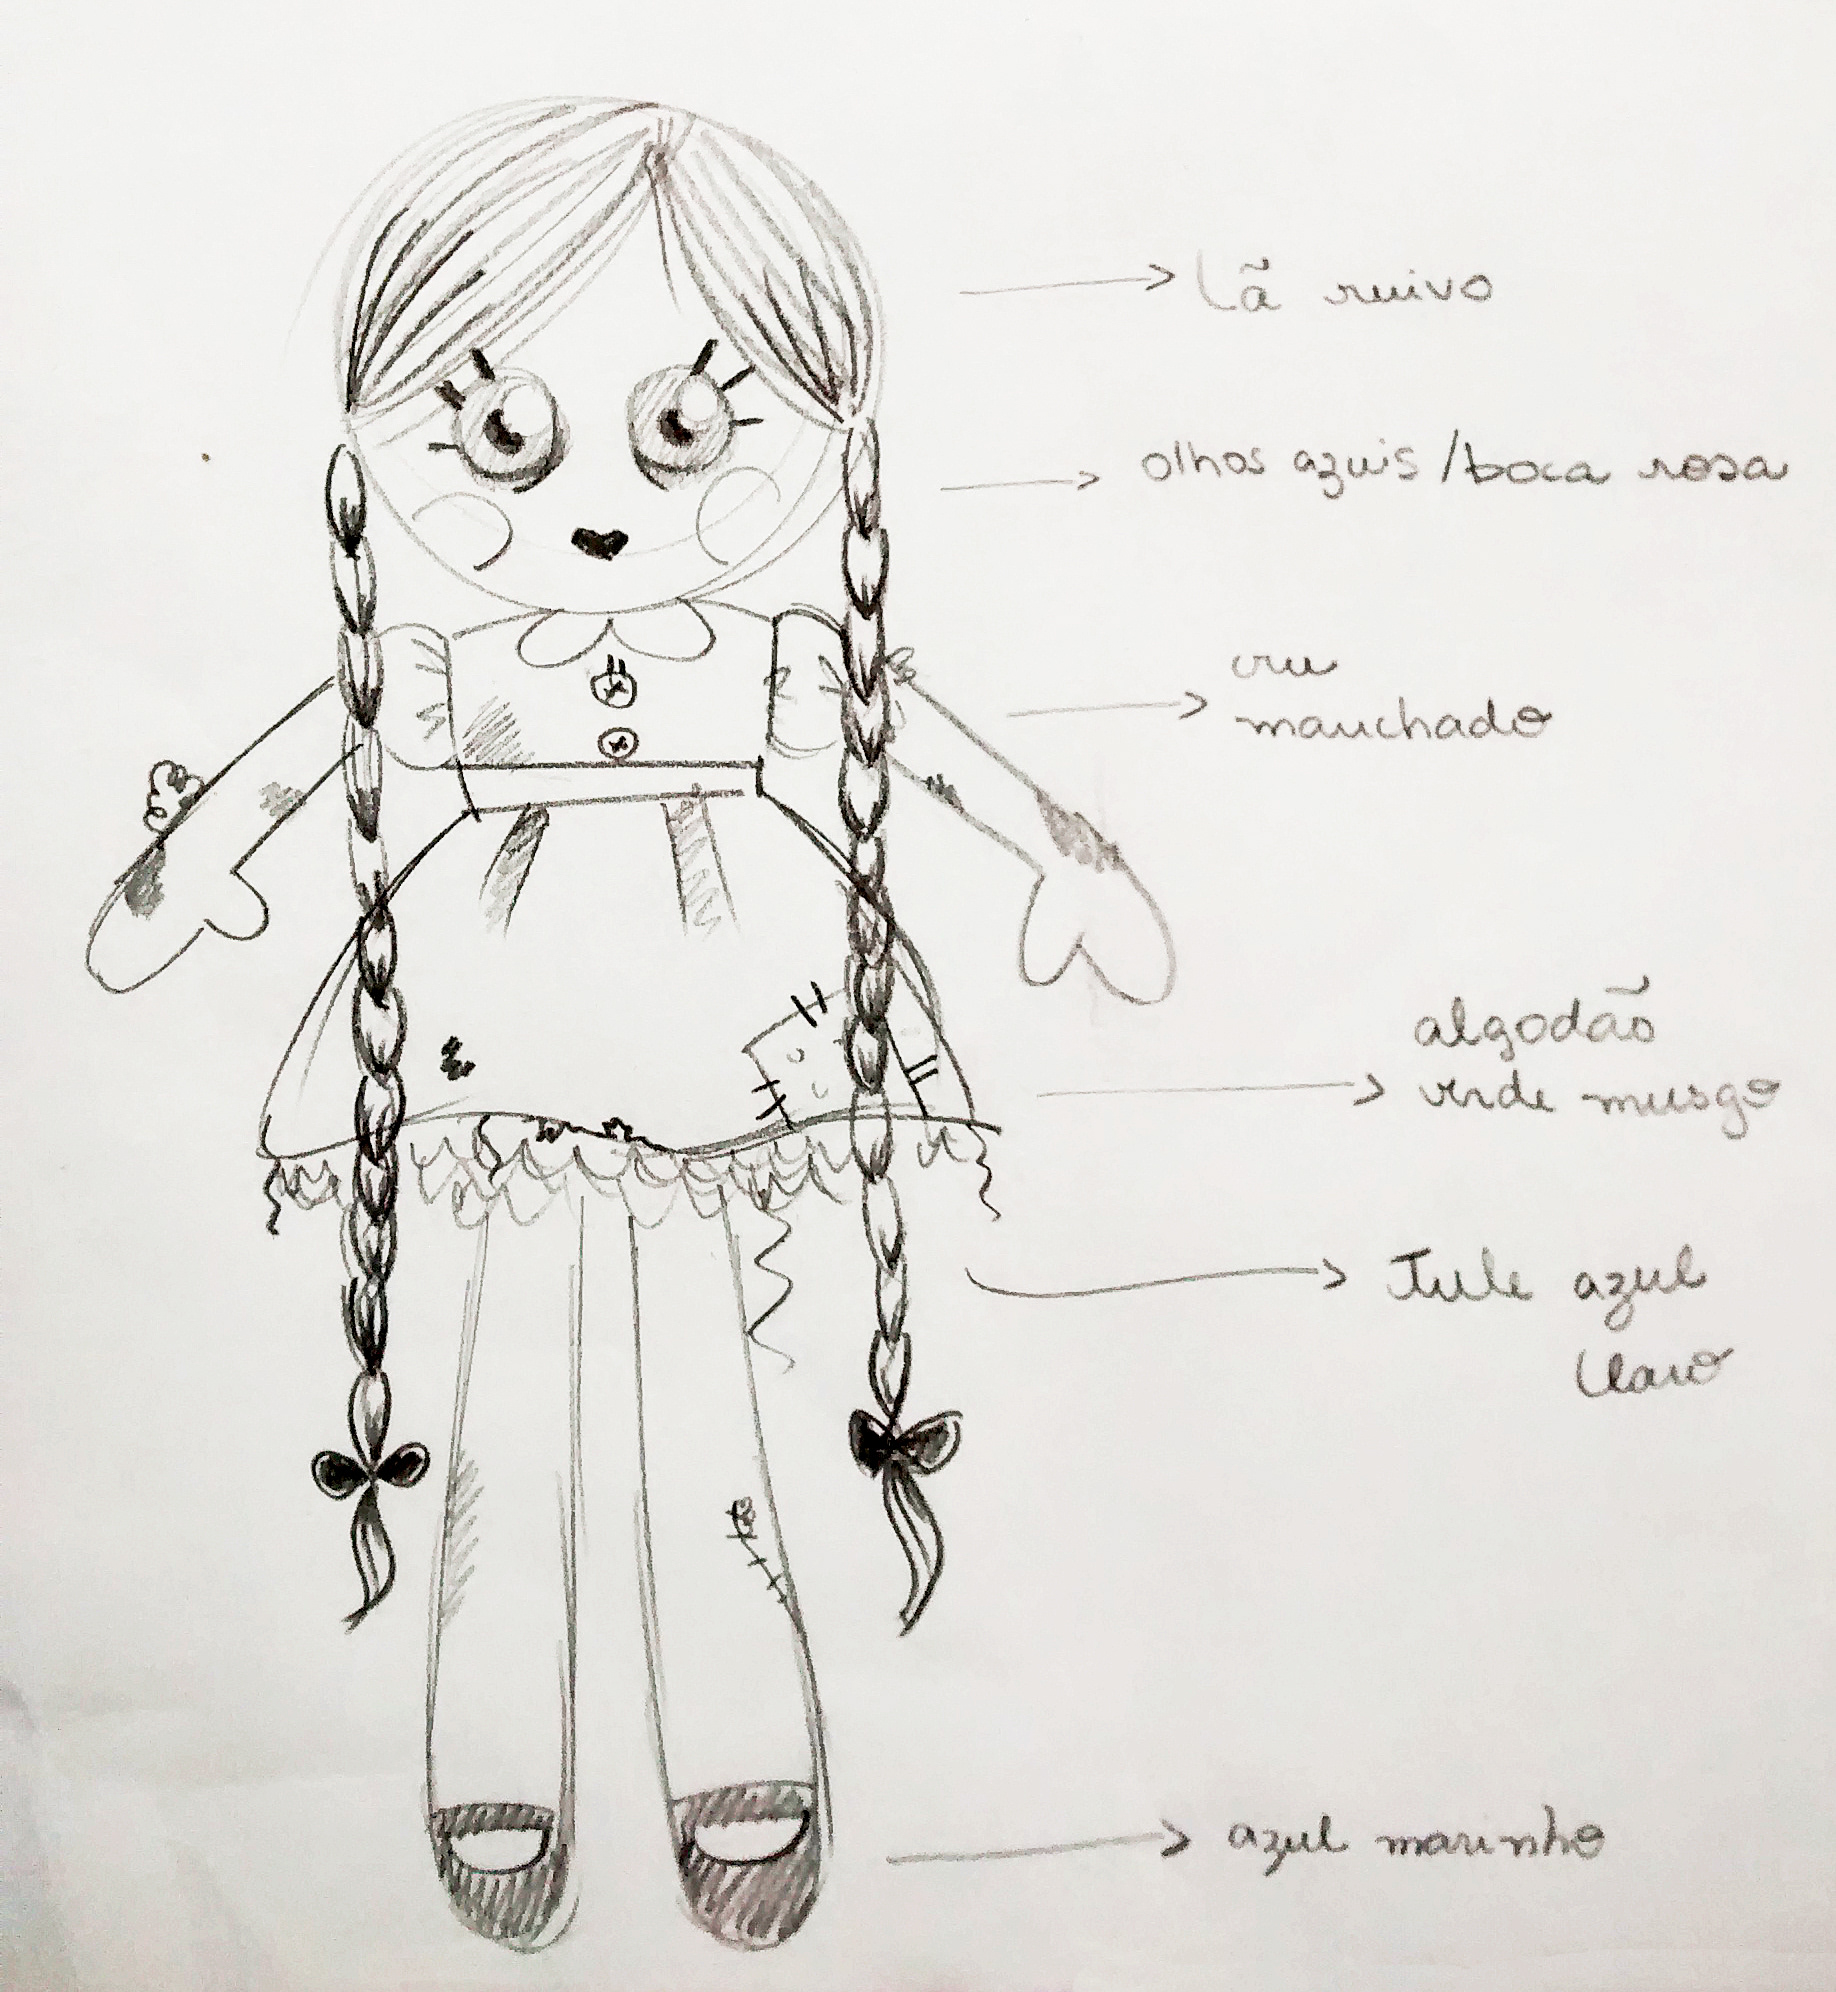 lã ruivo
olhos azuis / boca rosa
cru
manchado
algodão
verde musgo
Tule azul
claro
azul marinho